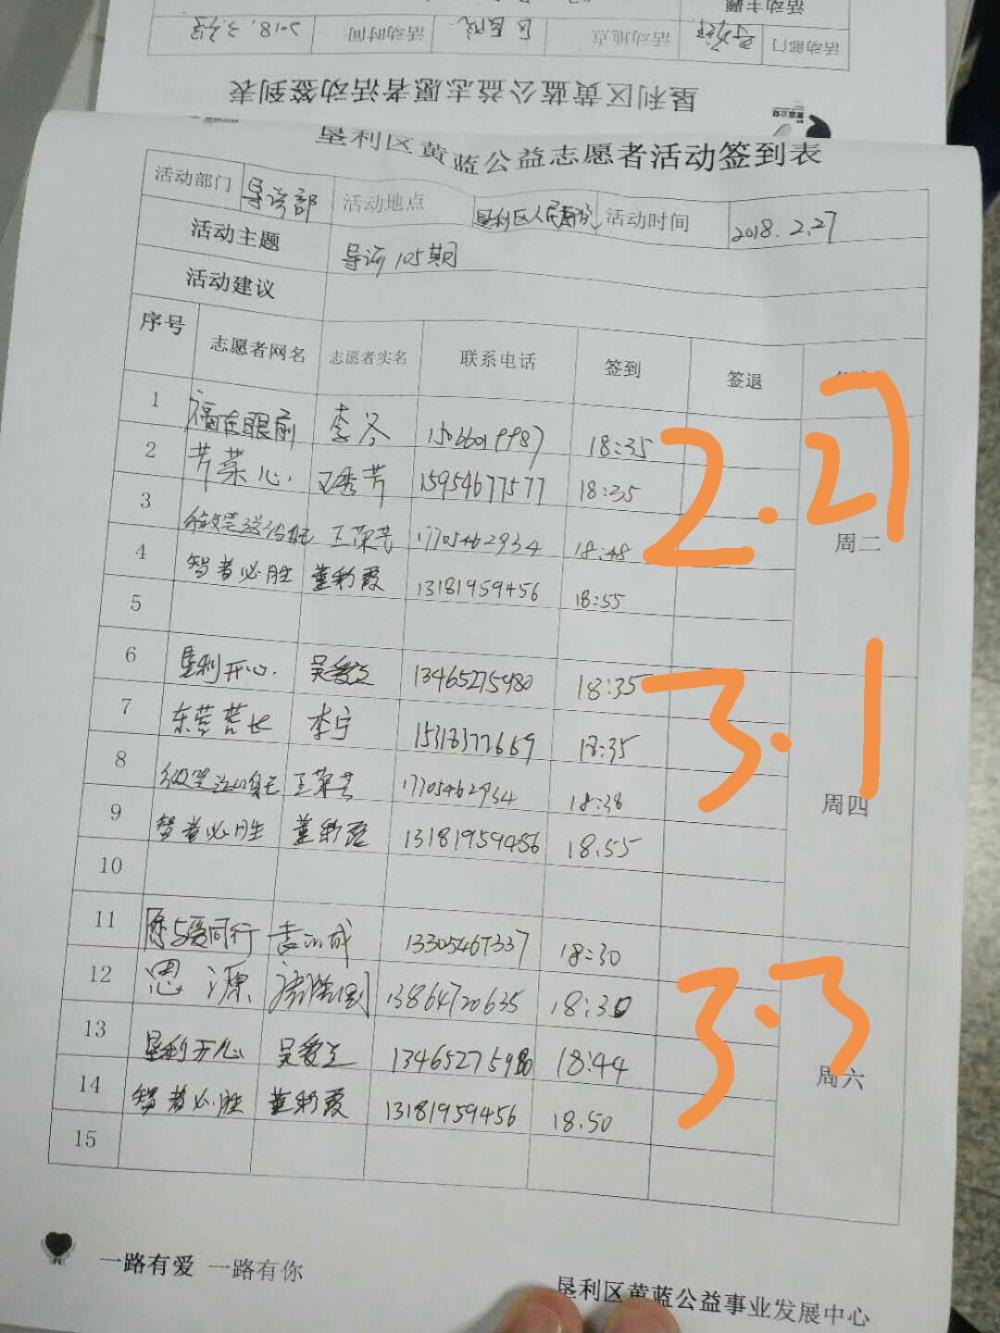 垦利区黄蓝公益志愿者活动签到表
活动部门 活动地点 区医院 活动时间
活动主题
垦利区黄蓝公益志愿者活动签到表
活动部门 导诊部 活动地点 垦利区人民医院 活动时间 2018.2.27
活动主题 导诊105期
活动建议
序号 志愿者网名 志愿者实名 联系电话 签到 签退
1 福在眼前 李冬 18:35
2 芹菜心. 王秀芹 15954677577 18:35
3 王荣芸 17705462934 18:48
4 智者必胜 董彩霞 13181959456 18:55
5
2.27
周二
6 垦利开心. 吴爱芝 13465275980 18:35
7 东营营长 李宁 15318377669 18:35
8 王荣芸 17705462934 18:38
9 智者必胜 董彩霞 13181959456 18.55
10
3.1
周四
11 与爱同行 13305467337 18:30
12 思源 13864720635 18:30
13 垦利开心 吴爱芝 13465275980 18:44
14 智者必胜 董彩霞 13181959456 18.50
15
3.3
周六
一路有爱 一路有你
垦利区黄蓝公益事业发展中心